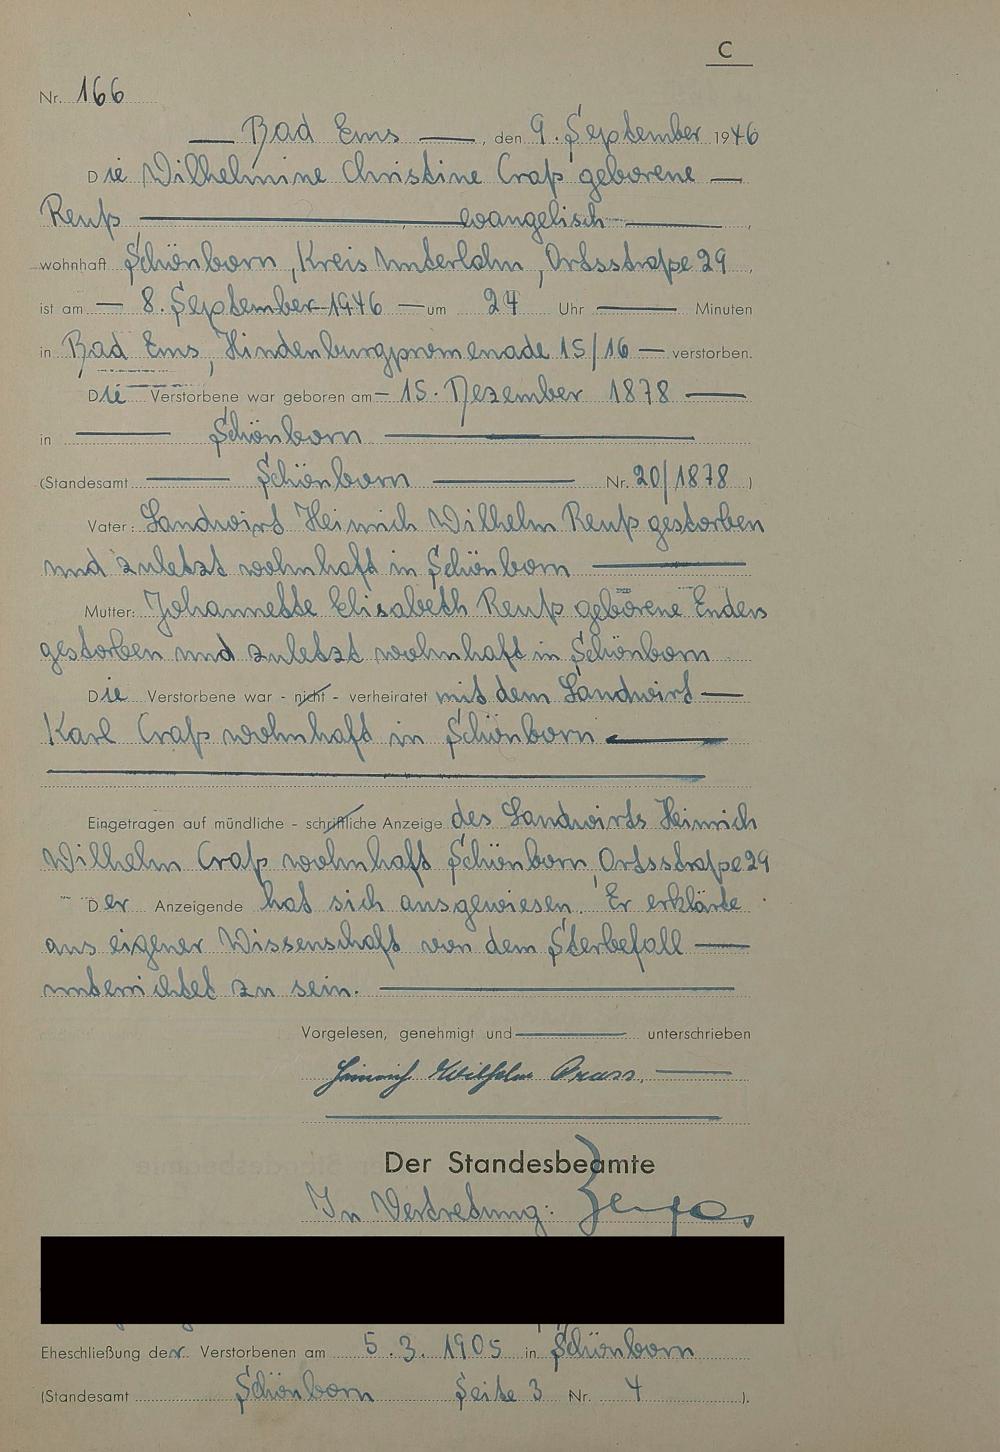 C
Nr. 166
Bad Ems, den 9. September 1946
Die Wilhelmine Christine Craß geborene
Reuß evangelisch,
wohnhaft Schönborn, Kreis Unterlahn, Ortsstraße 29,
ist am 8. September 1946 um 24 Uhr Minuten
in Bad Ems, Hindenburgpromenade 15/16 verstorben.
Die Verstorbene war geboren am 15. Dezember 1878
in Schönborn
(Standesamt Schönborn Nr. 20/1878)
Vater: Landwirt Heinrich Wilhelm Reuß gestorben
und zuletzt wohnhaft in Schönborn
Mutter: Johannette Elisabeth Reuß geborene Enders
gestorben und zuletzt wohnhaft in Schönborn
Die Verstorbene war - nicht - verheiratet mit dem Landwirt
Karl Craß wohnhaft in Schönborn
Eingetragen auf mündliche - schriftliche Anzeige des Landwirts Heinrich
Wilhelm Craß wohnhaft Schönborn, Ortsstraße 29
Der Anzeigende hat sich ausgewiesen. Er erklärte
aus eigener Wissenschaft von dem Sterbefall
unterrichtet zu sein.
Vorgelesen, genehmigt und unterschrieben
Heinrich Wilhelm Crass.
Der Standesbeamte
In Vertretung:
Eheschließung der Verstorbenen am 5.3.1905 in Schönborn
(Standesamt Schönborn Seite 3 Nr. 4).